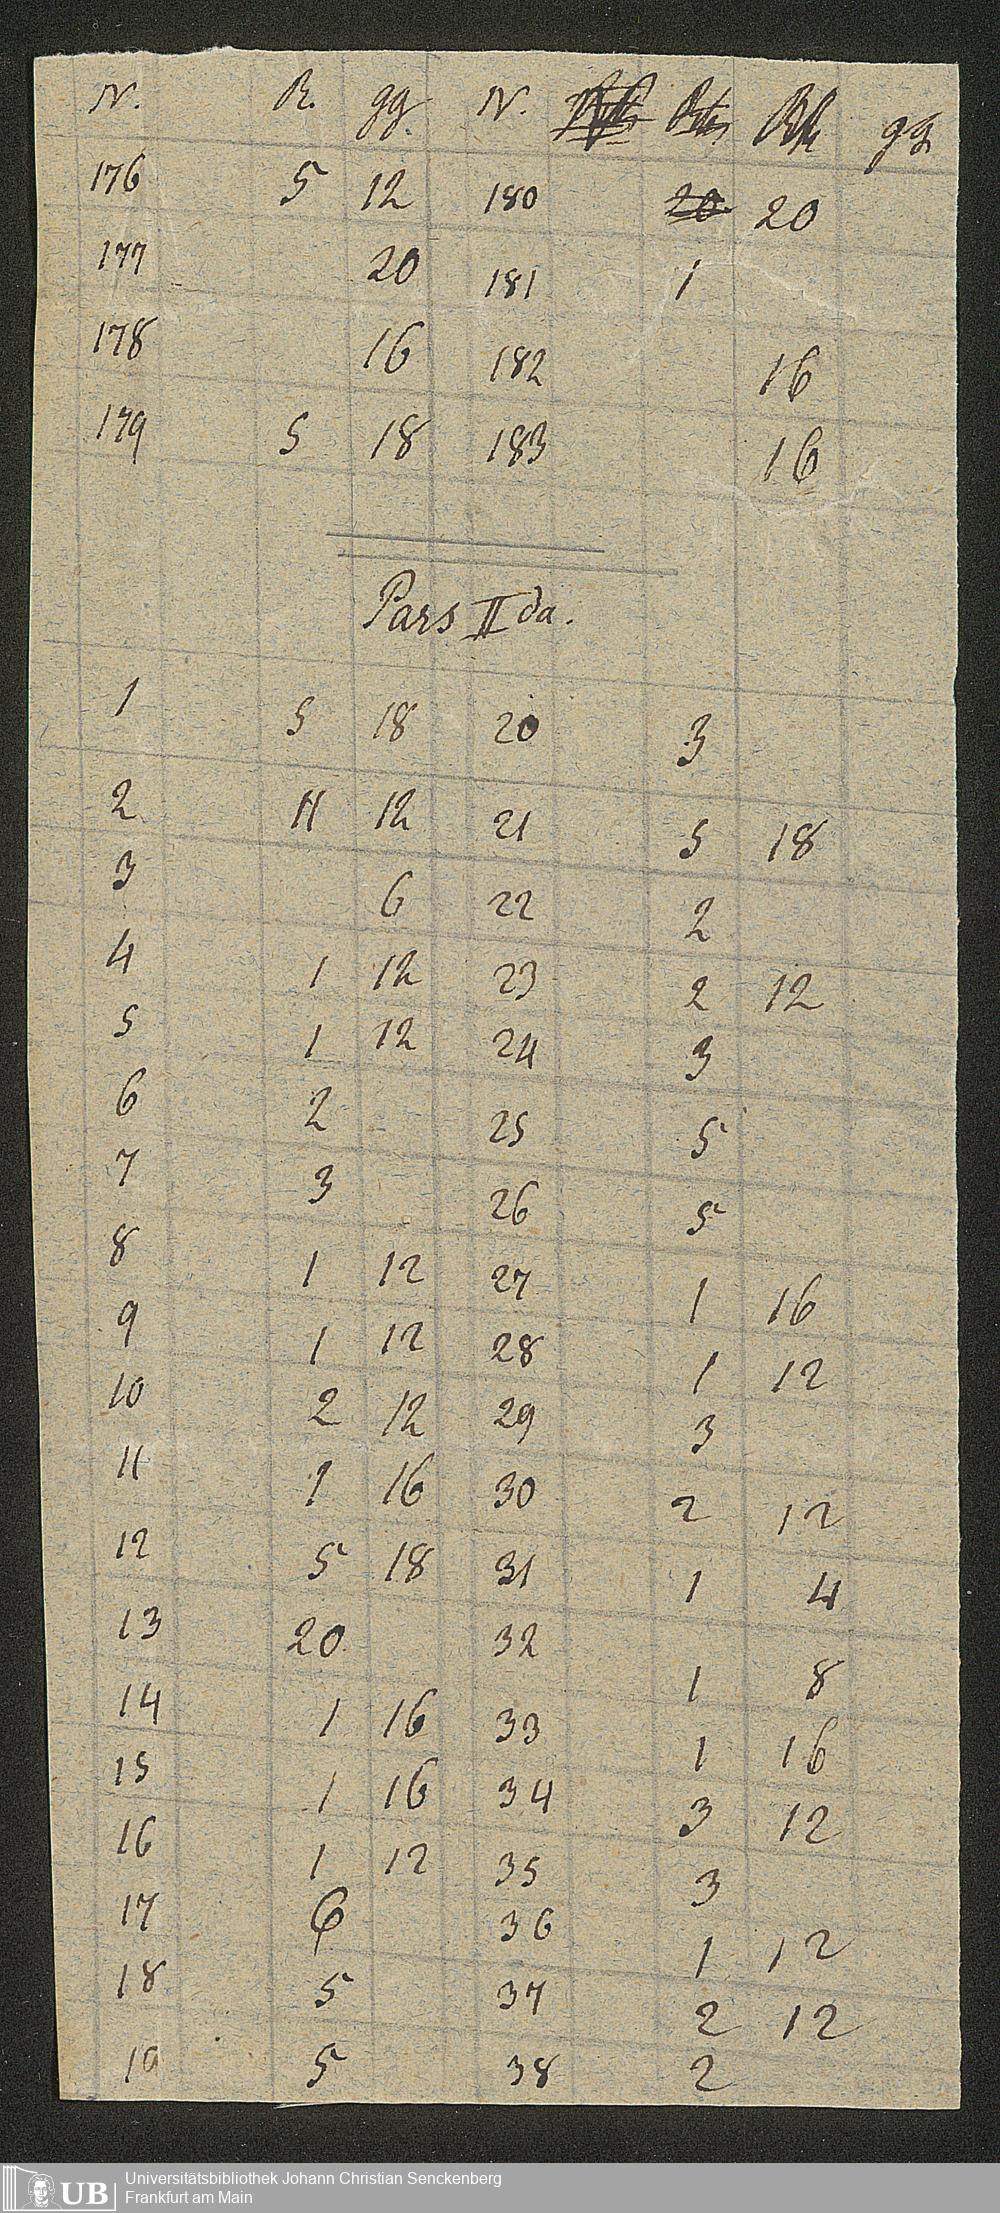 N. R. gg N. gg
176 5 12 180 20 20
177 20 181 1
178 16 182 16
179 5 18 183 16
Pars II da.
1 5 18 20 3
2 11 12 21 5 18
3 6 22 2
4 1 12 23 2 12
5 1 12 24 3
6 2 25 5
7 3 26 5
8 1 12 27 1 16
9 1 12 28 1 12
10 2 12 29 3
11 1 16 30 2 12
12 5 18 31 1 4
13 20 32 1 8
14 1 16 33 1 16
15 1 16 34 3 12
16 1 12 35 3
17 6 36 1 12
18 5 37 2 12
19 5 38 2
UB
Universitätsbibliothek Johann Christian Senckenberg
Frankfurt am Main